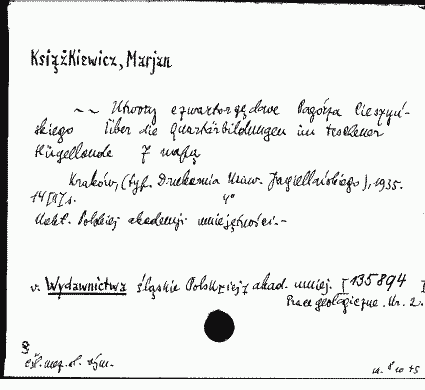 Książkiewicz, Marjan
~ ~ Utwory czwartorzędowe Pogórza Cieszyń-
skiego Über die Quartärbildungen im Teschener
Hügellande Z mapą
Kraków, (typ. Drukarnia Uniw. Jagiellońskiego), 1935.
14 [II] s. 4°
Nakł. Polskiej akademji umiejętności.-
v. Wydawnictwa śląskie Polskiej akad. umiej. [135894]
Prace geologiczne. Nr. 2.